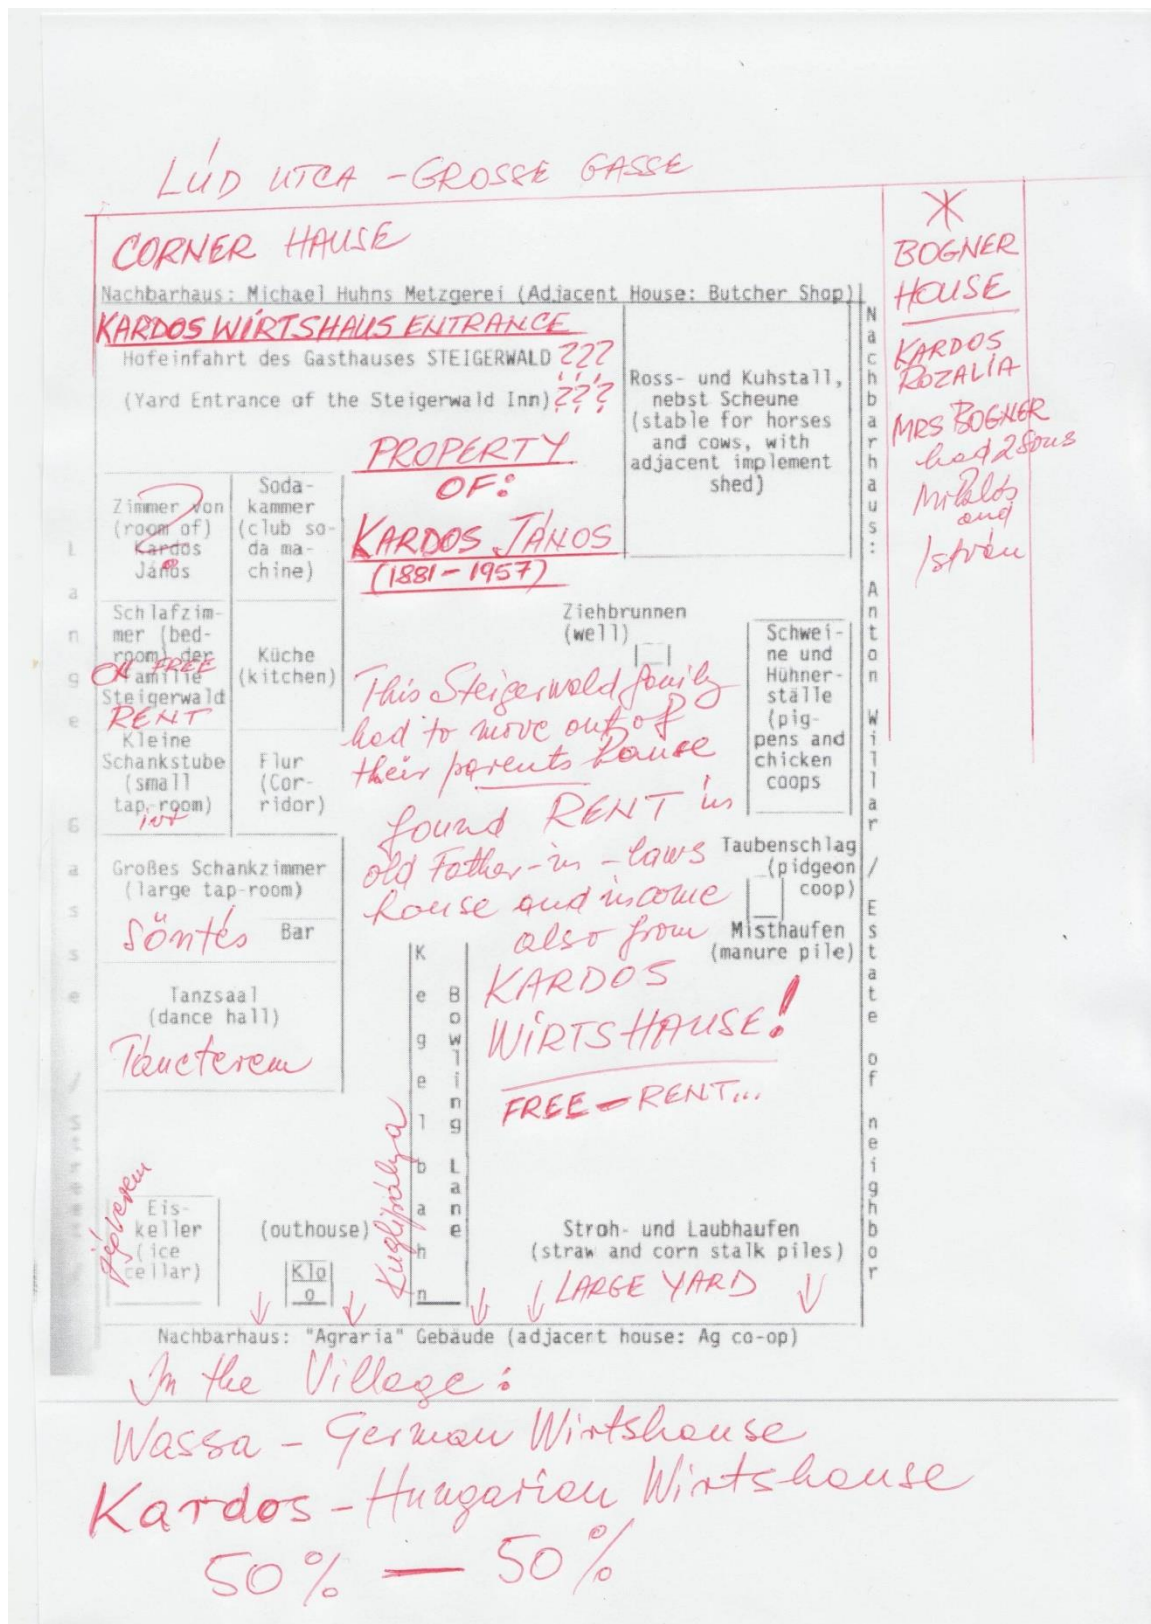 LÚD UTCA - GROSSE GASSE
CORNER HAUSE
Nachbarhaus: Michael Huhns Metzgerei (Adjacent House: Butcher Shop)
KARDOS WIRTSHAUS ENTRANCE
Hofeinfahrt des Gasthauses STEIGERWALD ???
(Yard Entrance of the Steigerwald Inn) ???
PROPERTY
OF:
KARDOS JÁNOS
(1881 - 1957)
Ross- und Kuhstall,
nebst Scheune
(stable for horses
and cows, with
adjacent implement
shed)
BOGNER
HOUSE
KARDOS
ROZALIA
MRS BOGNER
had 2 Sons
Miklós
and
István
Nachbarhaus: Anton Willar / Estate of neighbor
Lange Gasse
Zimmer von
(room of)
Kardos
János
?
Soda-
kammer
(club so-
da ma-
chine)
Schlafzim-
mer (bed-
room) der
Familie
Steigerwald
ON FREE
RENT
Küche
(kitchen)
Kleine
Schankstube
(small
tap-room)
Flur
(Cor-
ridor)
Großes Schankzimmer
(large tap-room)
Söntés Bar
Tanzsaal
(dance hall)
Táncterem
Ziehbrunnen
(well)
Schwei-
ne und
Hühner-
ställe
(pig-
pens and
chicken
coops
This Steigerwald family
had to move out of
their parents hause
found RENT in
old Father-in-laws
house and income
also from
KARDOS
WIRTSHAUSE!
FREE - RENT...
Taubenschlag
(pidgeon
coop)
Misthaufen
(manure pile)
Kegelbahn
Bowling Lane
Kuglipálya
Jégverem
Eis-
keller
(ice
cellar)
(outhouse)
Klo
o
Stroh- und Laubhaufen
(straw and corn stalk piles)
LARGE YARD
Nachbarhaus: "Agraria" Gebäude (adjacent house: Ag co-op)
In the Village:
Wassa - German Wirtshouse
Kardos - Hungarian Wirtshouse
50% — 50%